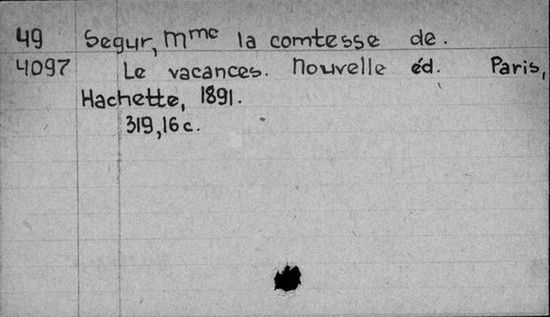 49 Segur, Mme la comtesse de.
4097 Le vacances. Nouvelle éd. Paris,
Hachette, 1891.
319,16 c.